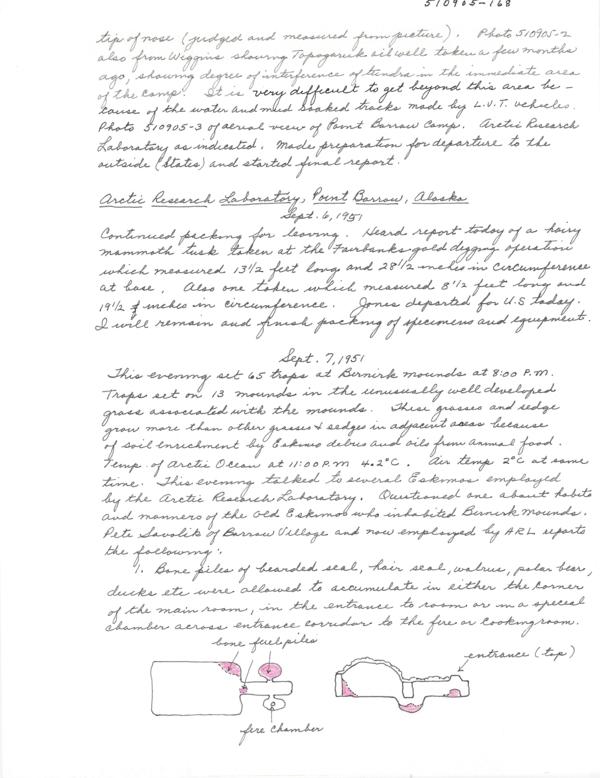 510905-168
tip of nose (judged and measured from picture). Photo 510905-2
also from Wiggins showing Topagaruk oil well taken a few months
ago, showing degree of interference of tundra in the immediate area
of the camp. It is very difficult to get beyond this area be-
cause of the water and mud soaked tracks made by L.V.T. vehicles.
Photo 510905-3 of aerial view of Point Barrow Camp. Arctic Research
Laboratory as indicated. Made preparation for departure to the
outside (States) and started final report.
Arctic Research Laboratory, Point Barrow, Alaska
Sept. 6, 1951
Continued packing for leaving. Heard report today of a hairy
mammoth tusk taken at the Fairbanks gold digging operation
which measured 13 1/2 feet long and 28 1/2 inches in circumference
at base. Also one taken which measured 8 1/2 feet long and
19 1/2 inches in circumference. Jones departed for U.S today.
I will remain and finish packing of specimens and equipment.
Sept. 7, 1951
This evening set 65 traps at Birnirk mounds at 8:00 P.M.
Traps set on 13 mounds in the unusually well developed
grass associated with the mounds. These grasses and sedge
grow more than other grasses & sedges in adjacent areas because
of soil enrichment by Eskimo debris and oils from animal food.
Temp of Arctic Ocean at 11:00 P.M 4.2°C. Air temp 2°C at same
time. This evening talked to several Eskimos employed
by the Arctic Research Laboratory. Questioned one about habits
and manners of the old Eskimos who inhabited Birnirk Mounds.
Pete Savolik of Barrow Village and now employed by ARL reports
the following:
1. Bone piles of bearded seal, hair seal, walrus, polar bear,
ducks etc were allowed to accumulate in either the corner
of the main room, in the entrance to room or in a special
chamber across entrance corridor to the fire or cooking room.
bone fuel piles
entrance (top)
fire chamber